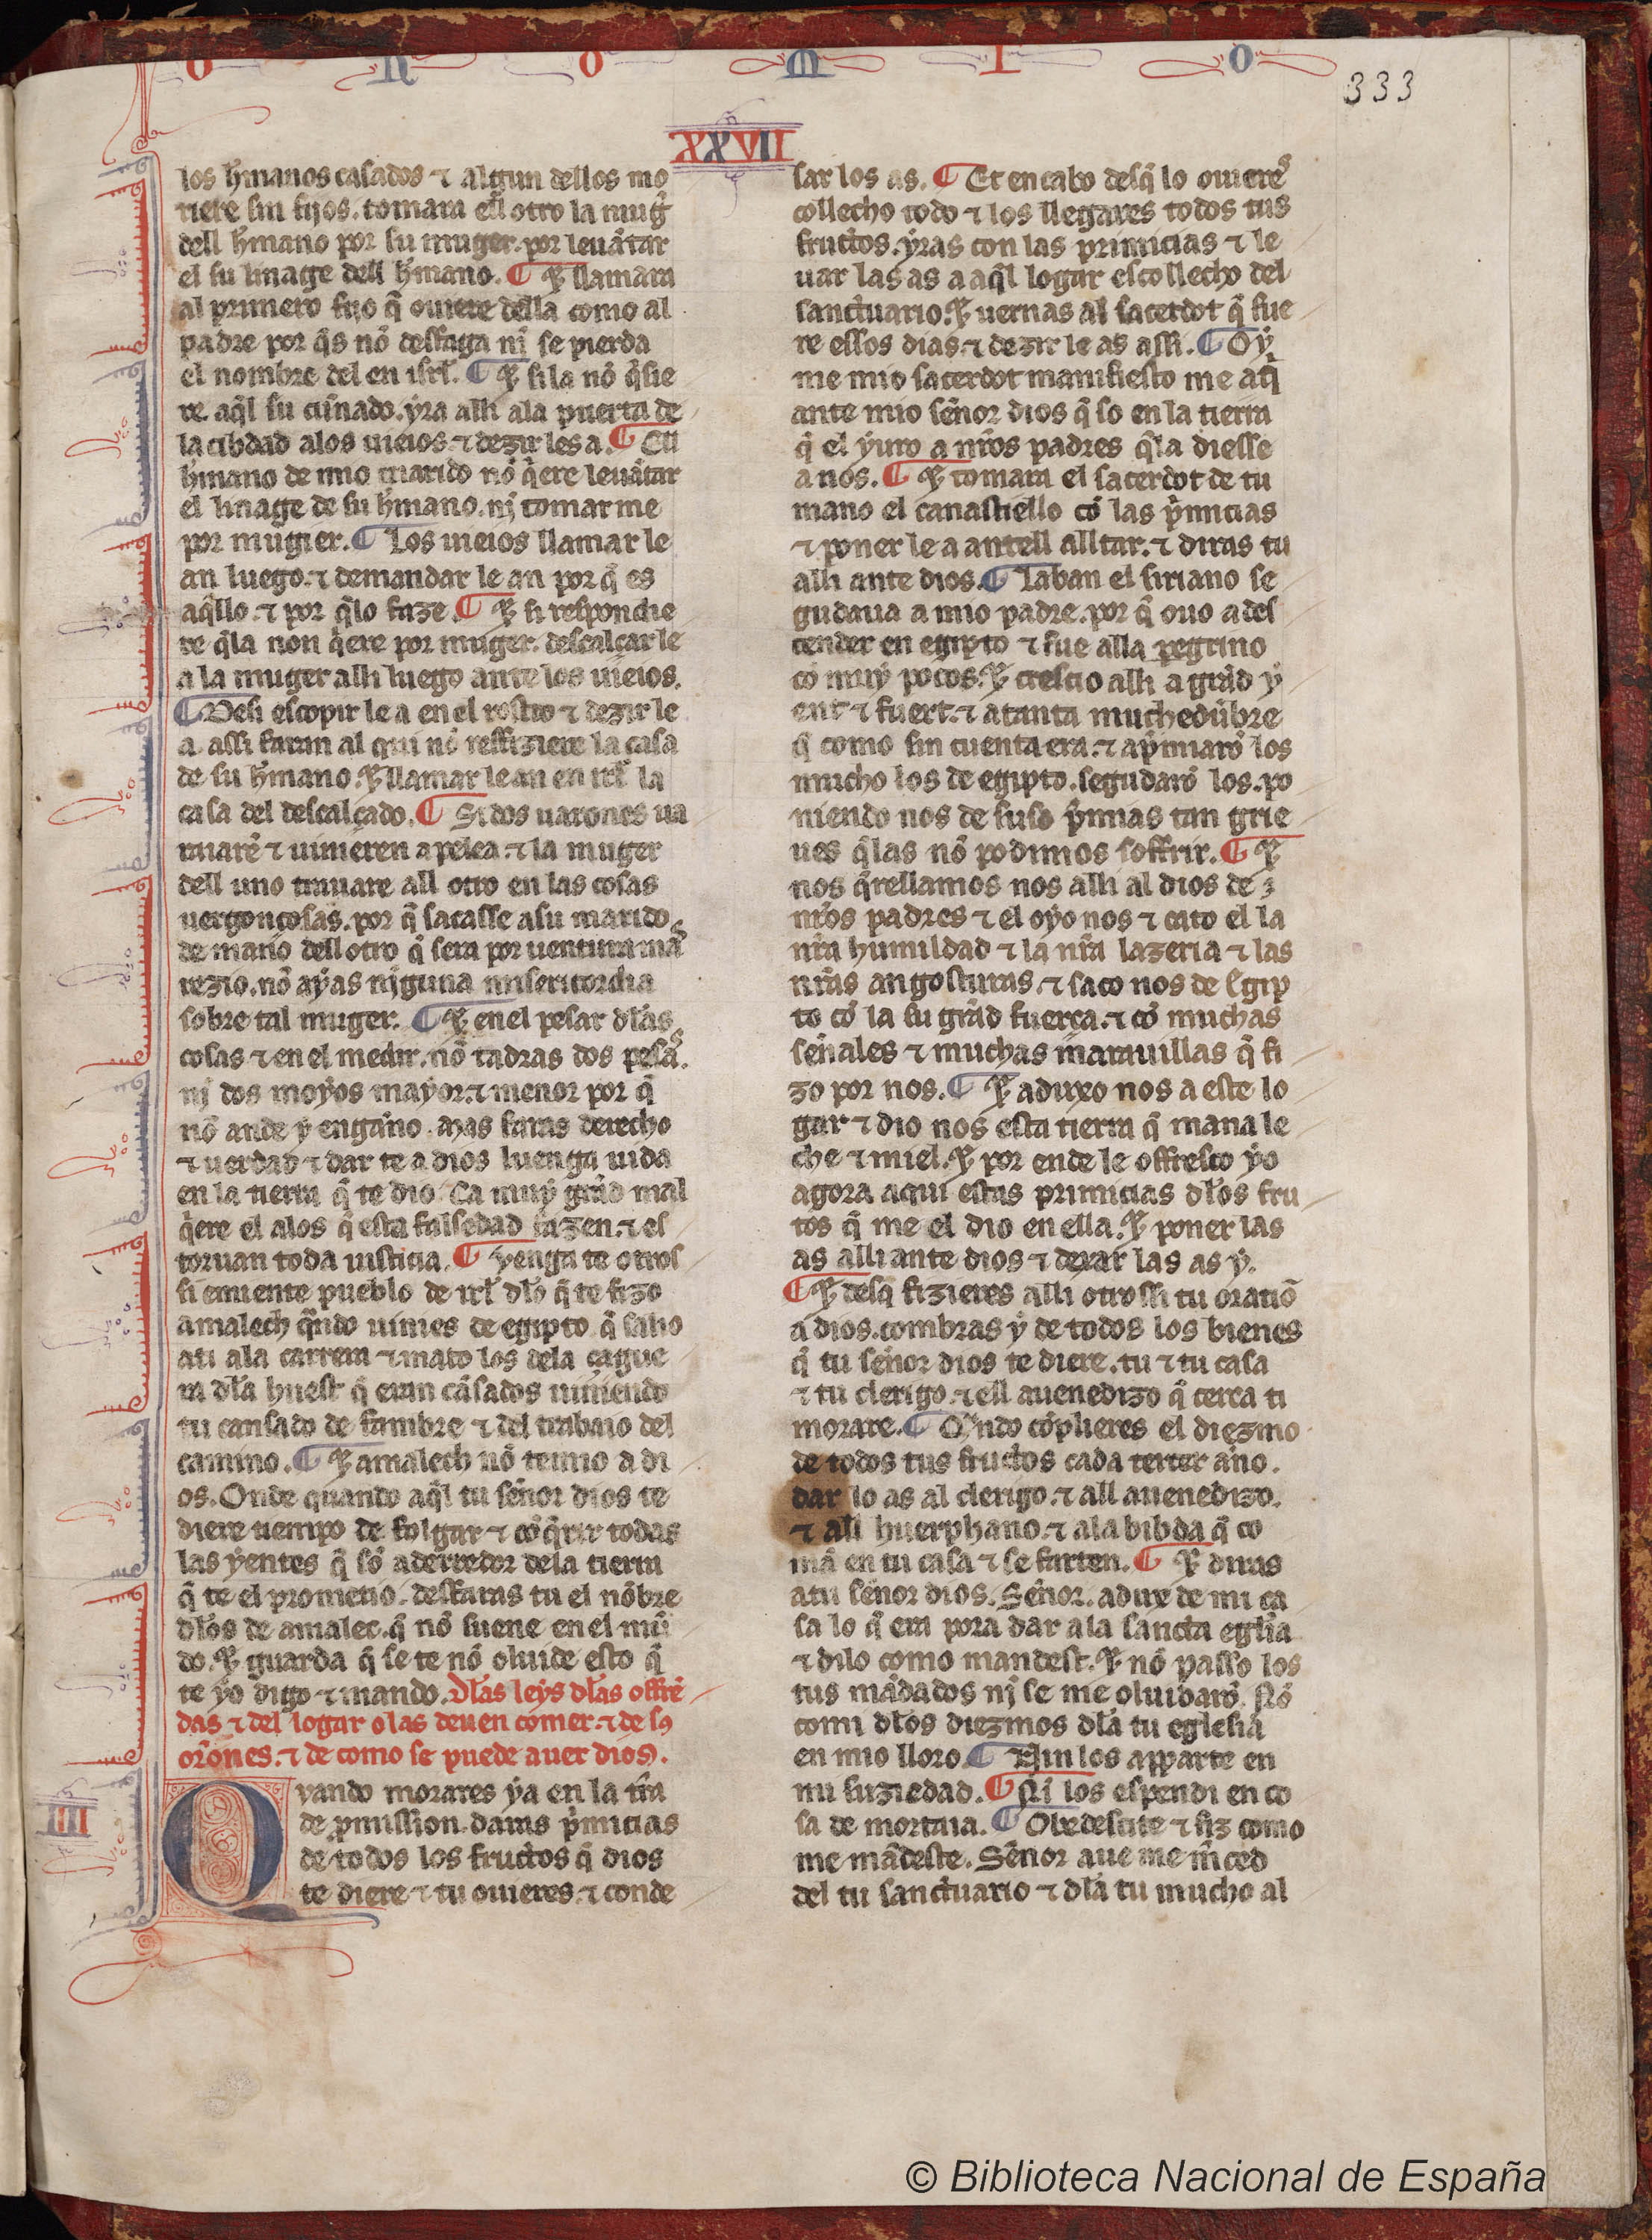 O R O M I O
333
XXVII
los hmanos casados ⁊ algun dellos mo
riere sin fijos. tomara ell otro la mug̃
dell hmano por su muger. por leuãtar
el su linage dell hmano. ¶ Et llamara
al primero fijo q̃ ouiere della como al
padre por q̃s nõ desfaga nĩ se pierda
el nombre del en isrl̃. ¶ Et si la nõ q̃sie
re aq̃l su cunnado. yra alli ala puerta de
la cibdad alos uieios. ⁊ dezir les a. ¶ Ell
hmano de mio marido nõ q̃ere leuãtar
el linage de su hmano. nj tomar me
por mugier. ¶ Los uieios llamar le
an luego. ⁊ demandar le an por q̃ es
aq̃llo. ⁊ por q̃lo faze. ¶ Et si respondie
re q̃la non q̃ere por muger. descalçar le
a la muger alli luego ante los uieios.
¶ Desi escopir le a en el rostro ⁊ dezir le
a. assi faran al qui nõ reffiziere la casa
de su hmano. Et llamar le an en irl̃ la
casa del descalçado. ¶ Si dos uarones ua
raiarẽ ⁊ uinieren a pelea. ⁊ la muger
dell uno trauare all otro en las cosas
uergonçosas. por q̃ sacasse asu marido
de mano dell otro q̃ sera por uentura mã
rezio. nõ ayas njguna misericordia
sobre tal muger. ¶ Et en el pesar dlãs
cosas ⁊ en el medir. nõ tadras dos pesãs.
nj dos moyos mayor. ⁊ menor por q̃
nõ ande y enganno. mas faras derecho
⁊ uerdad ⁊ dar te a dios luenga uida
en la tierra q̃ te dio. Ca muy grãd mal
q̃ere el alos q̃ esta falsedad fazen. ⁊ es
toruan toda iusticia. ¶ Venga te otros
si emiente pueblo de irl̃ dlõ q̃ te fizo
amalech q̃ndo uinies de egipto. q̃ salio
ati ala carrera ⁊ mato los dela çague
ra dlã huest q̃ eran cãsados uiniendo
tu cansado de fambre ⁊ del trabaio del
camino. ¶ Et amalech nõ temio a di
os. Onde quando aq̃l tu sennor dios te
diere tiempo de folgar ⁊ cõq̃rir todas
las yentes q̃ sõ aderredor dela tierra
q̃ te el prometio. desfaras tu el nõbre
dlõs de amalec. q̃ nõ suene en el mũ
do. Et guarda q̃ se te nõ oluide esto q̃
te yo digo ⁊ mando. Dlãs leys dlãs offrẽ
das ⁊ del logar o las deuen comer. ⁊ de sꝯ
orõnes. ⁊ de como se puede auer dios.
III
Quando morares ya en la tr̃a
de ꝓmission. daras p̃micias
de todos los fructos q̃ dios
te diere ⁊ tu ouieres. ⁊ conde
sar los as. ¶ Et en cabo desq̃ lo ouierẽs
collecho todo ⁊ los llegares todos tus
fructos. yras con las primicias ⁊ le
uar las as a aq̃l logar escollecho del
sanctuario. Et uernas al sacerdot q̃ fue
re essos dias. ⁊ dezir le as assi. ¶ Oy
me mio sacerdot manifiesto me aq̃
ante mio sennor dios q̃ so en la tierra
q̃ el yuro a nr̃os padres q̃la diesse
a nos. ¶ Et tomara el sacerdot de tu
mano el canastiello cõ las p̃micias
⁊ poner le a antell alltar. ⁊ diras tu
alli ante dios. ¶ Laban el siriano se
gudaua a mio padre. por q̃ ouo a des
cender en egipto ⁊ fue alla ꝑegrino
cõ muy pocos. Et crescio alli a grãd y
ent ⁊ fuert. ⁊ atanta muchedũbre
q̃ como sin cuenta era. ⁊ ap̃miarõ los
mucho los de egipto. segudarõ los. po
niendo nos de suso p̃mias tan grie
ues q̃las nõ podimos soffrir. ¶ Et
nos q̃rellamos nos alli al dios de
nr̃os padres ⁊ el oyo nos ⁊ cato el la
nr̃a humildad ⁊ la nr̃a lazeria ⁊ las
nr̃as angosturas. ⁊ saco nos de Egip
to cõ la su grãd fuerça. ⁊ cõ muchas
sennales ⁊ muchas marauillas q̃ fi
zo por nos. ¶ Et aduxo nos a este lo
gar ⁊ dio nos esta tierra q̃ mana le
che ⁊ miel. Et por ende le offresco yo
agora aqui estas primicias dlõs fru
tos q̃ me el dio en ella. Et poner las
as alli ante dios ⁊ dexar las as y.
¶ Et desq̃ fizieres alli otrossi tu oratiõ
a dios. combras y de todos los bienes
q̃ tu sennor dios te diere. tu ⁊ tu casa
⁊ tu clerigo. ⁊ ell auenedizo q̃ cerca ti
morare. ¶ Qñdo cõplieres el diezmo
de todos tus fructos cada tercer anno.
dar lo as al clerigo. ⁊ all auenedizo.
⁊ all huerphano. ⁊ ala bibda q̃ co
mã en tu casa ⁊ se farten. ¶ Et diras
atu sennor dios. Sennor. adux de mi ca
sa lo q̃ era pora dar ala sancta eglia
⁊ dilo como mandest. Et nõ passo los
tus mãdados nj se me oluidarõ. Nõ
comi dlõs diezmos dlã tu eglesia
en mio lloro. ¶ Nin los apparte en
mi suziedad. ¶ Ni los espendi en co
sa de mortaia. ¶ Obedescite ⁊ fiz como
me mãdeste. Sennor aue me m̃ced
del tu sanctuario ⁊ dlã tu mucho al
© Biblioteca Nacional de España